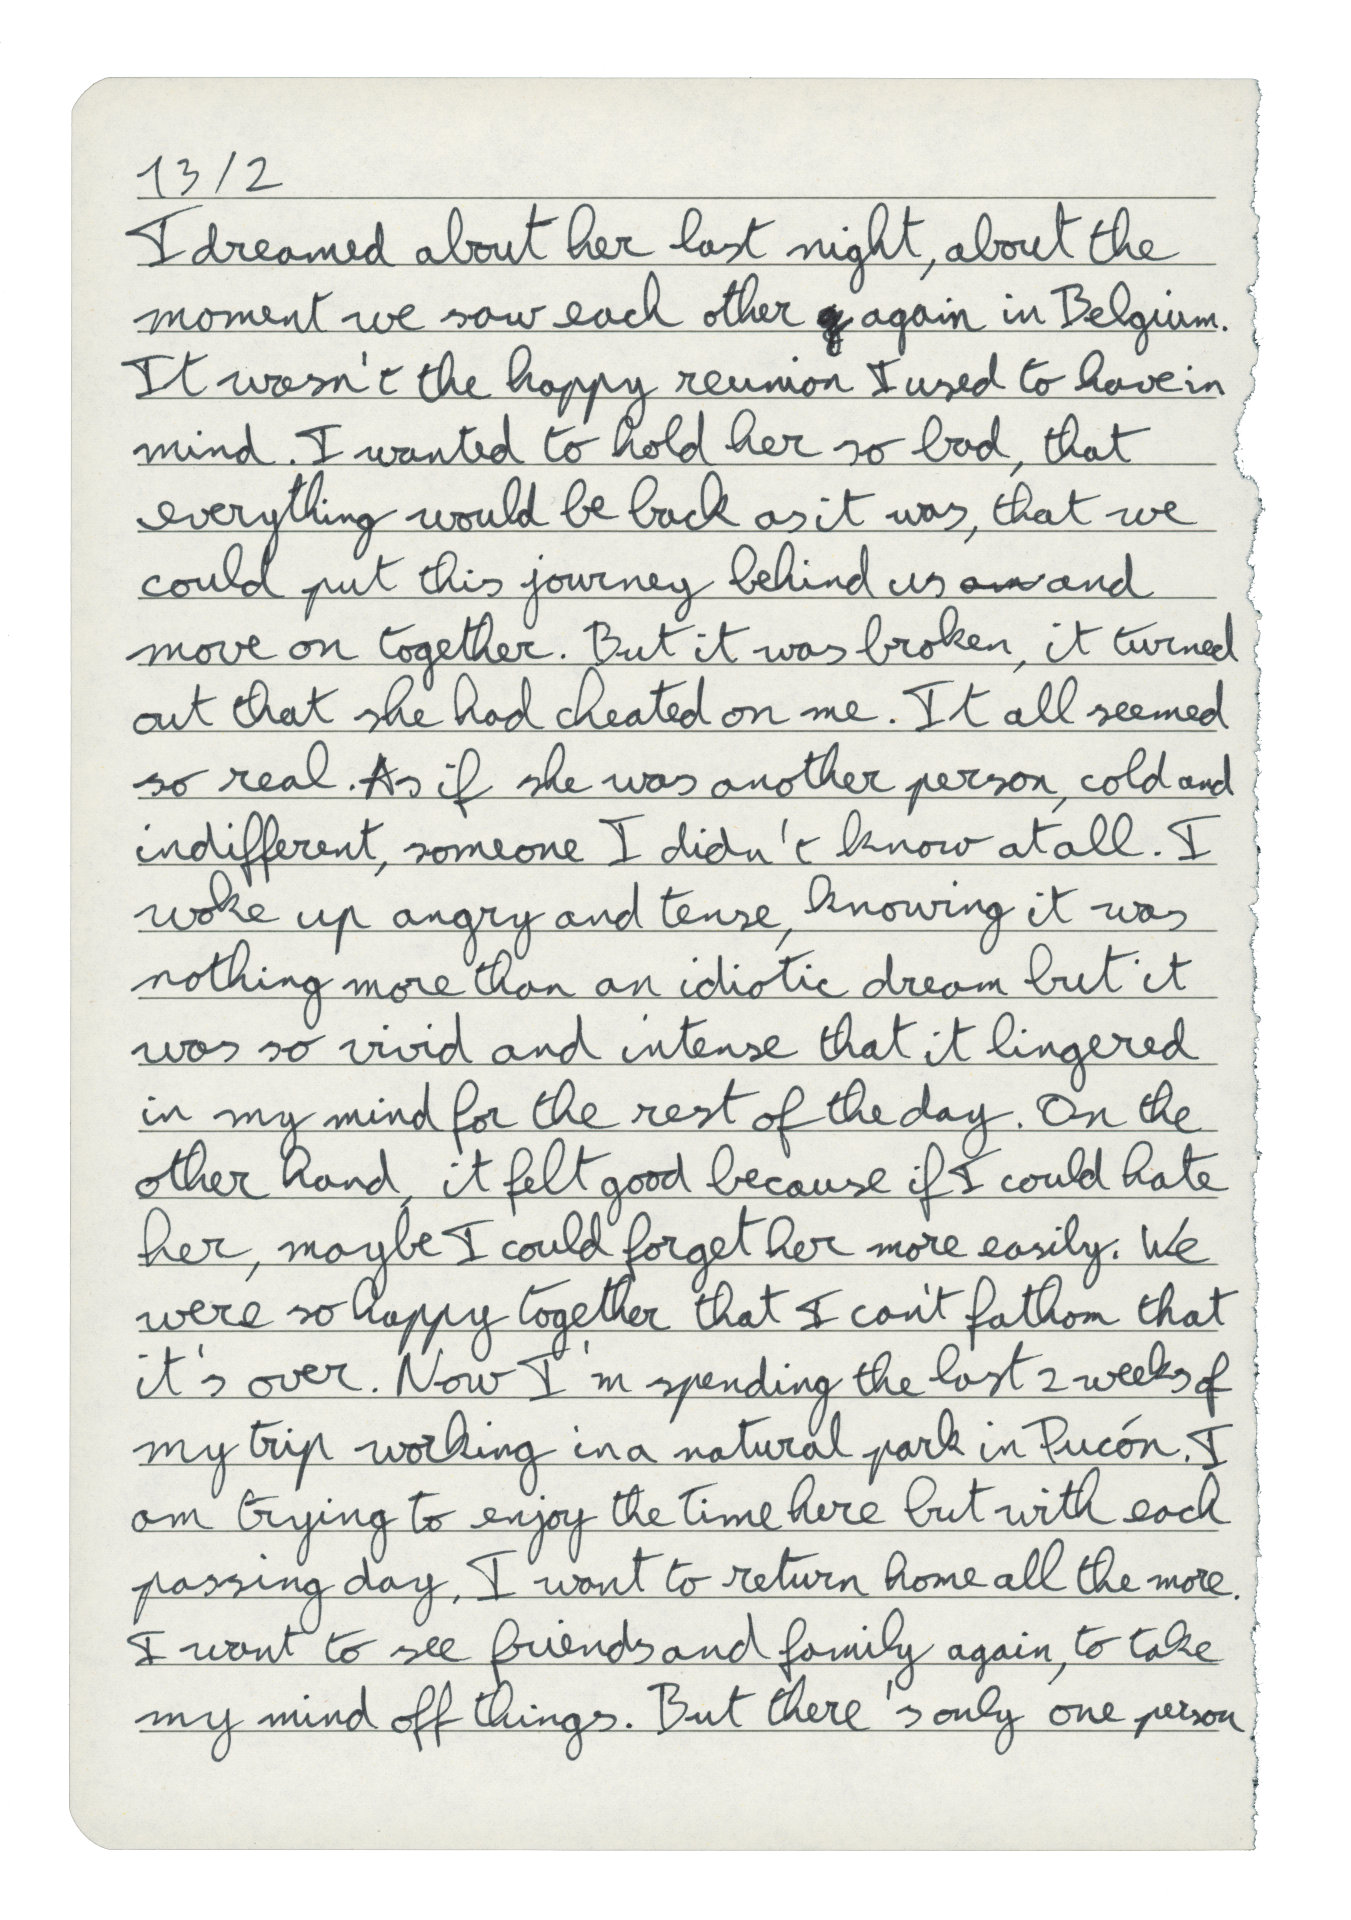 13/2
I dreamed about her last night, about the
moment we saw each other again in Belgium.
It wasn't the happy reunion I used to have in
mind. I wanted to hold her so bad, that
everything would be back as it was, that we
could put this journey behind us and
move on together. But it was broken, it turned
out that she had cheated on me. It all seemed
so real. As if she was another person, cold and
indifferent, someone I didn't know at all. I
woke up angry and tense, knowing it was
nothing more than an idiotic dream but it
was so vivid and intense that it lingered
in my mind for the rest of the day. On the
other hand, it felt good because if I could hate
her, maybe I could forget her more easily. We
were so happy together that I can't fathom that
it's over. Now I'm spending the last 2 weeks of
my trip working in a natural park in Pucón. I
am trying to enjoy the time here but with each
passing day, I want to return home all the more.
I want to see friends and family again, to take
my mind off things. But there's only one person